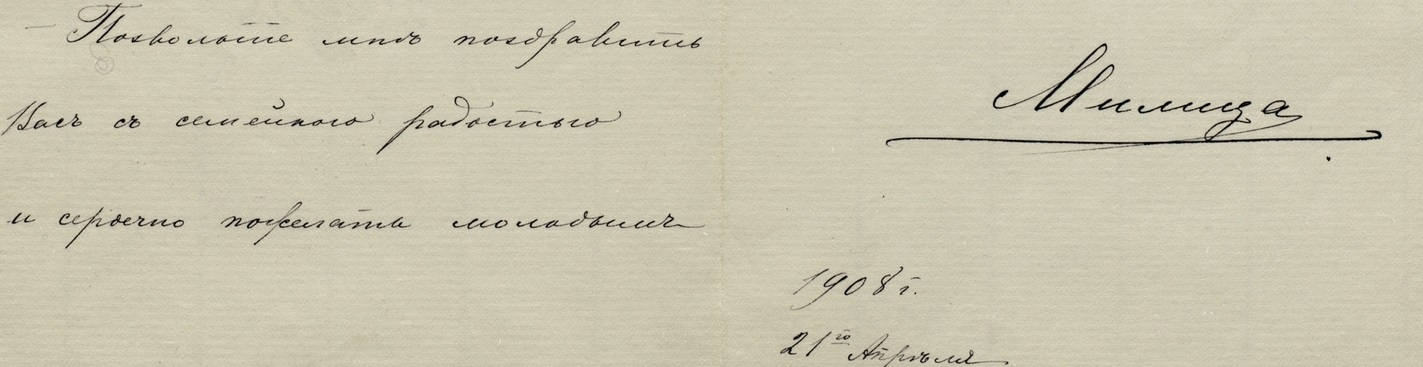 Позвольте мнѣ поздравить
Васъ съ семейною радостью
и сердечно пожелать молодымъ
Милица
1908 г.
21го Апрѣля